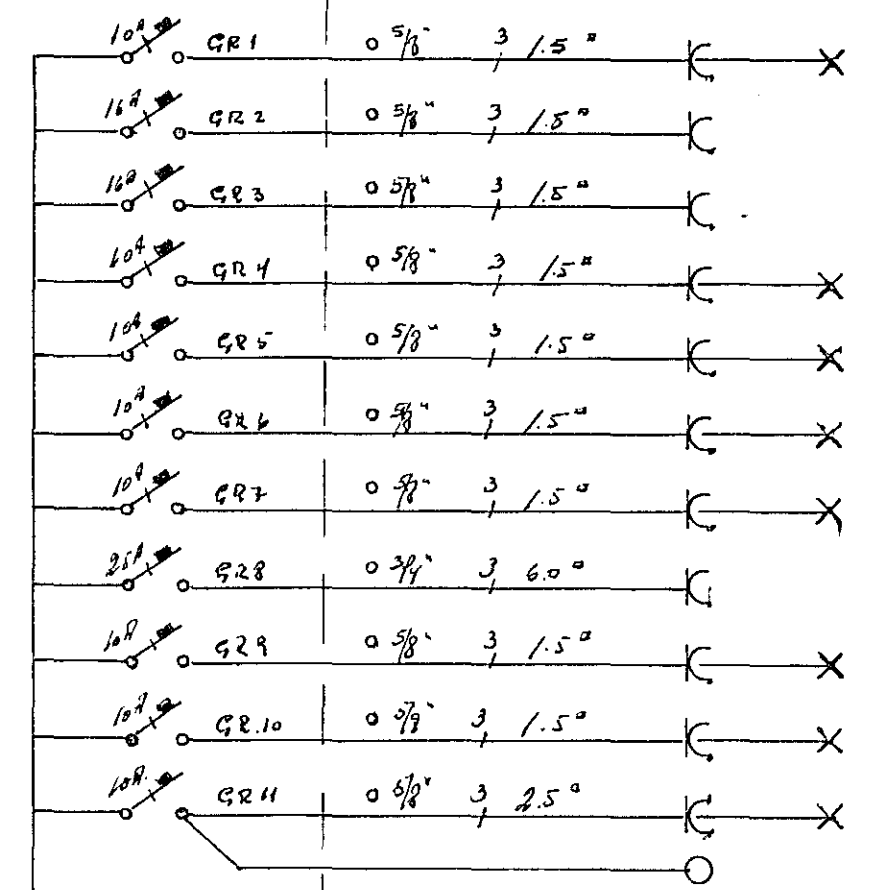 10A GR 1 5/8" 3 1.5 □
16A GR 2 5/8" 3 1.5 □
16A GR 3 5/8" 3 1.5 □
10A GR 4 5/8" 3 1.5 □
10A GR 5 5/8" 3 1.5 □
10A GR 6 5/8" 3 1.5 □
10A GR 7 5/8" 3 1.5 □
25A GR 8 3/4" 3 6.0 □
10A GR 9 5/8" 3 1.5 □
10A GR.10 5/8" 3 1.5 □
10A. GR 11 5/8" 3 2.5 □